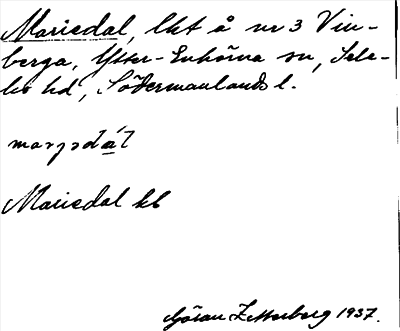 Mariedal, lht å nr 3 Vin-
berga, Ytter-Enhörna sn, Sele-
bo hd, Södermanlands l.
marjədál
Mariedal kb
Göran Zetterberg 1937.